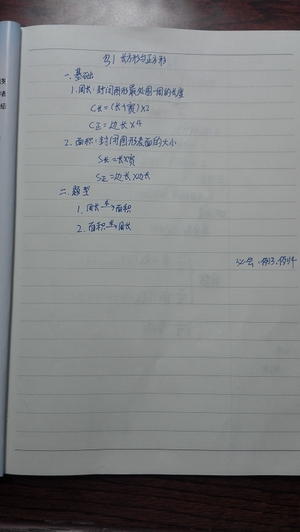 长方形与正方形
一、基础
1. 周长：封闭图形最外围一周的长度
C长=(长+宽)×2
C正=边长×4
2. 面积：封闭图形表面的大小
S长=长×宽
S正=边长×边长
二、题型
1. 周长求→面积
2. 面积求→周长
例3、例4